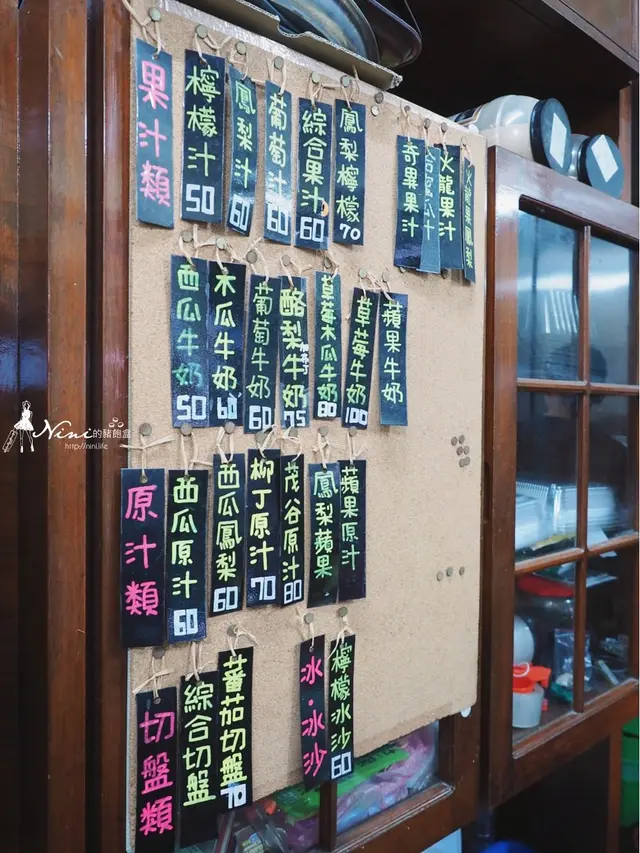 果汁類
檸檬汁 50
鳳梨汁 60
葡萄汁 60
綜合果汁 60
鳳梨檸檬 70
奇異果汁
哈蜜瓜汁
火龍果汁
火龍果鳳梨
西瓜牛奶 50
木瓜牛奶 60
葡萄牛奶 60
酪梨牛奶 75
草莓木瓜牛奶 80
草莓牛奶 100
蘋果牛奶
原汁類
西瓜原汁 60
西瓜鳳梨 60
柳丁原汁 70
茂谷原汁 80
鳳梨蘋果
蘋果原汁
切盤類
綜合切盤
蕃茄切盤 70
冰.冰沙
檸檬冰沙 60
Nini的豬飽盒
http://nini.life